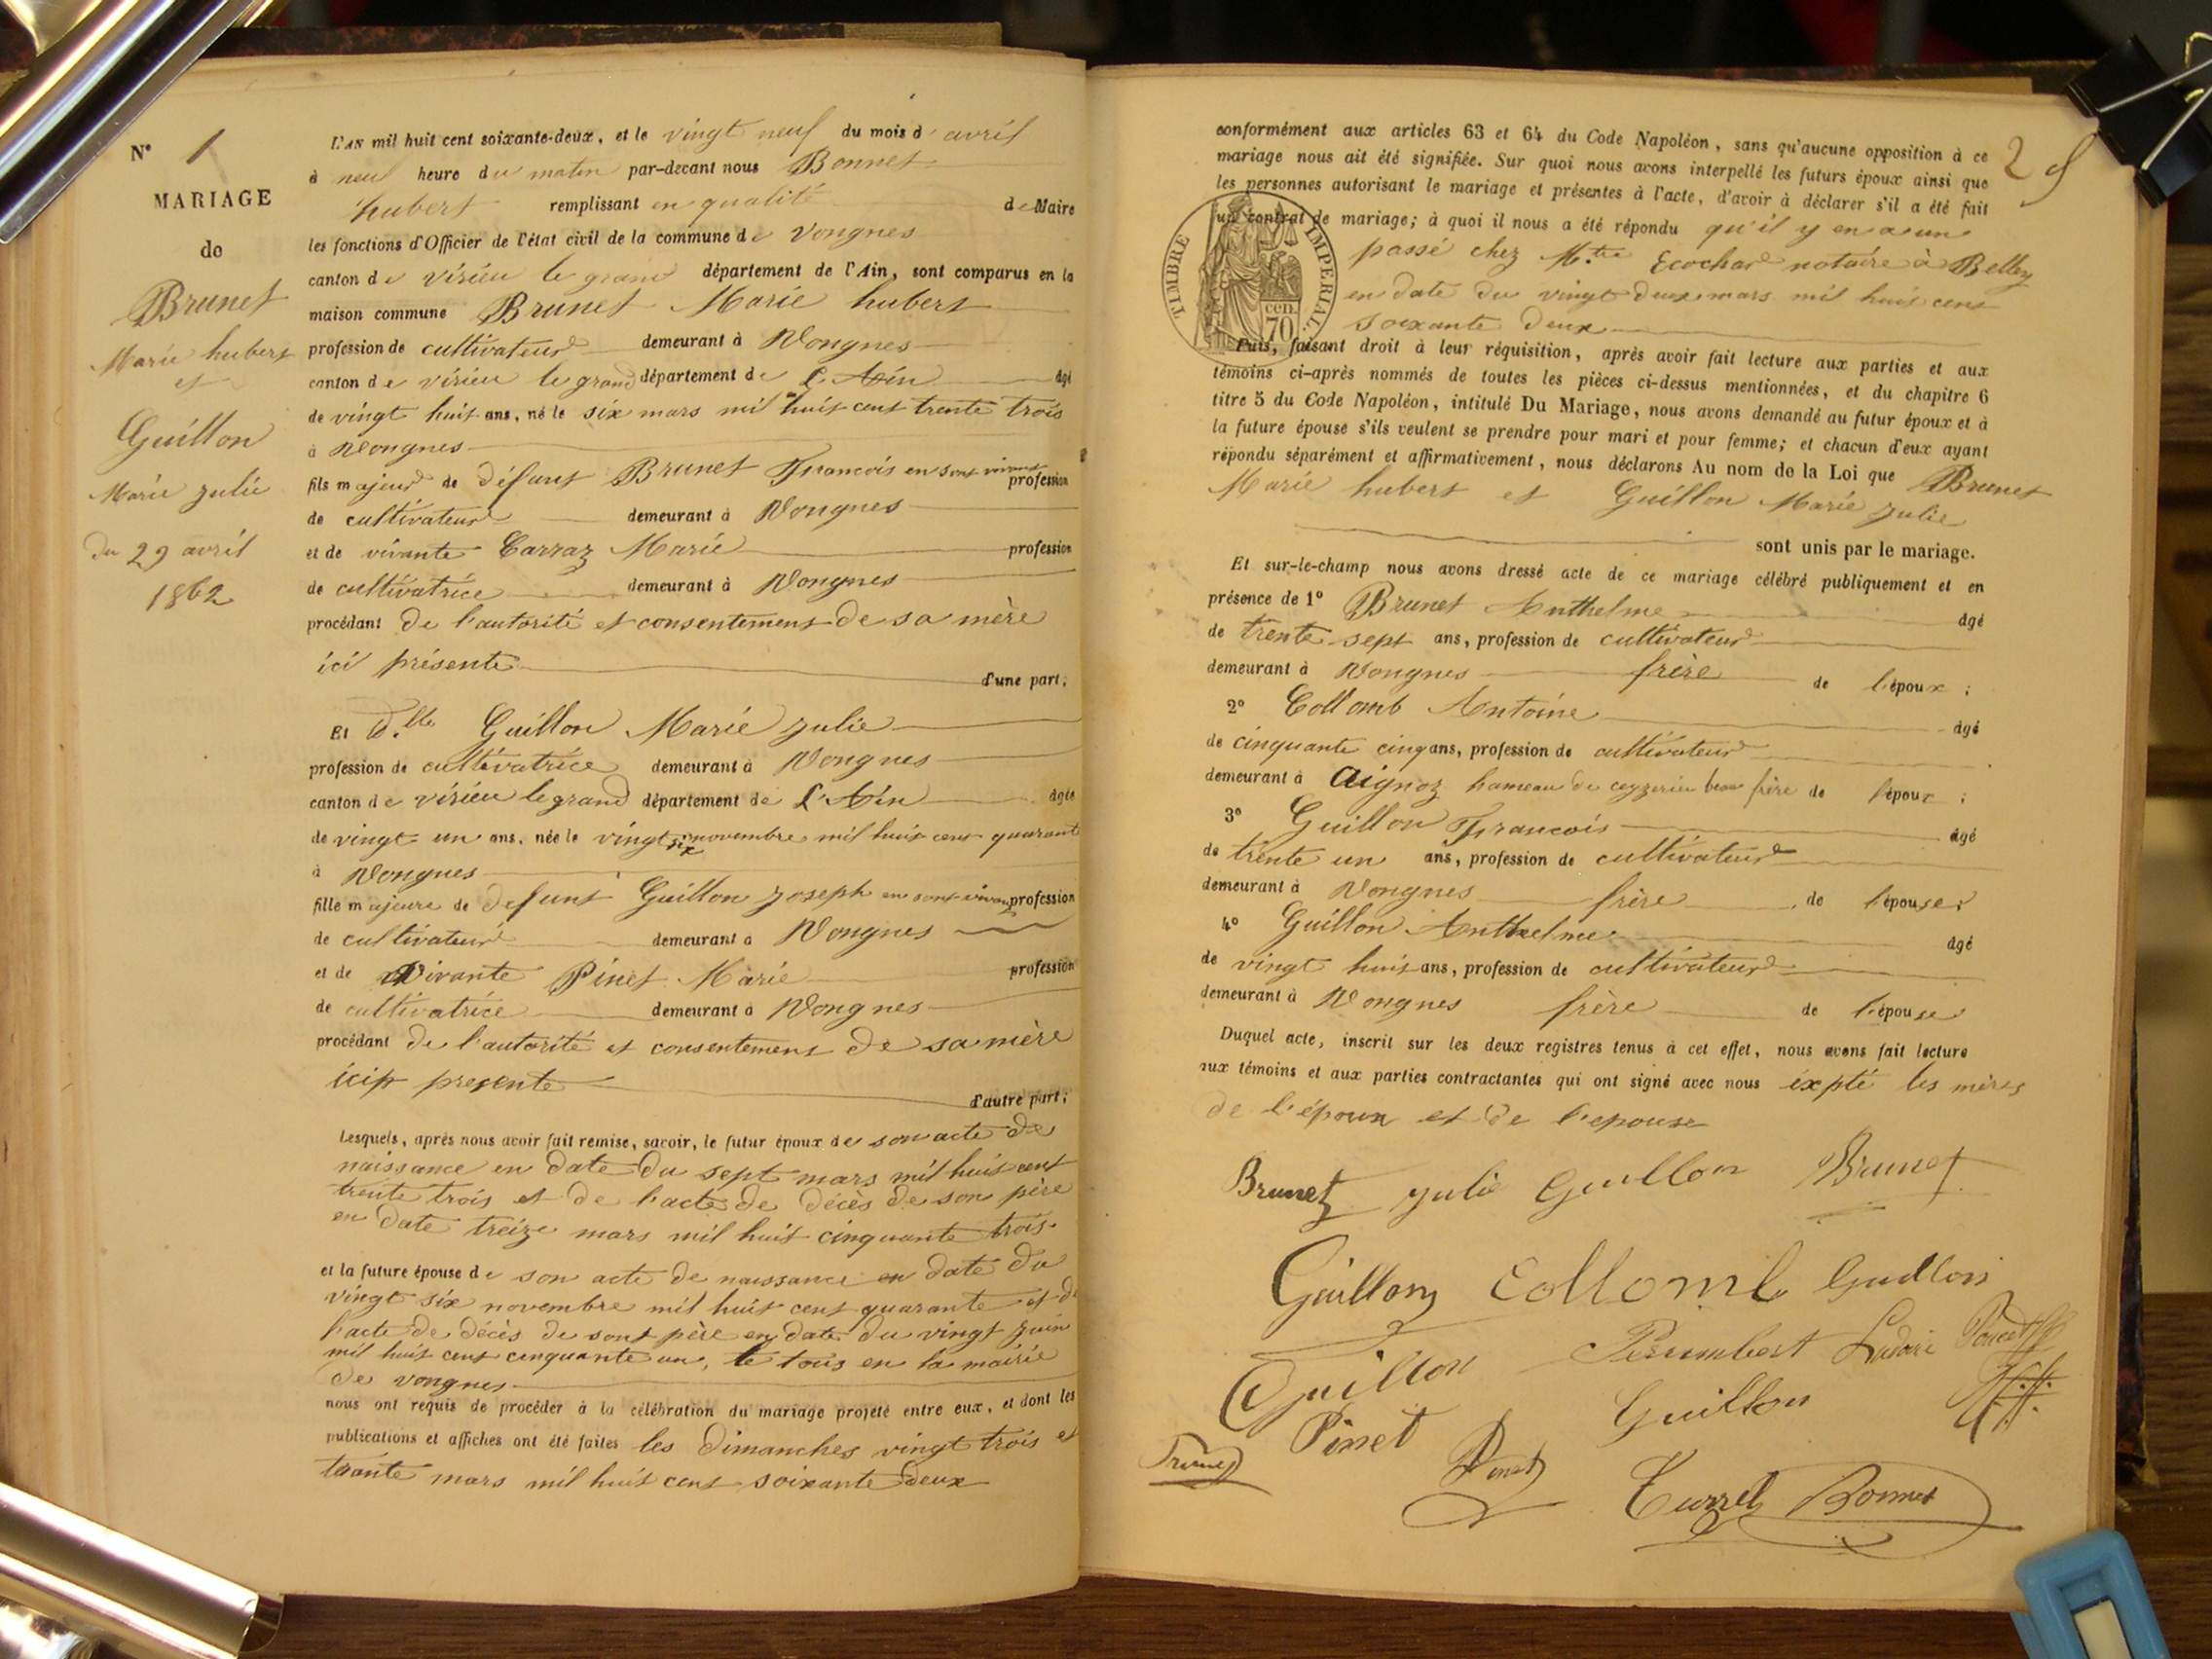 N° 1
MARIAGE
de
Brunet
Marie hubert
et
Guillon
Marie julie
du 29 avril
1862
L'AN mil huit cent soixante-deux, et le vingt neuf du mois d'avril
à neuf heure du matin par-devant nous Bonnet
hubert remplissant en qualité de Maire
les fonctions d'Officier de l'état civil de la commune de Vongnes
canton de virieu le grand département de l'Ain, sont comparus en la
maison commune Brunet Marie hubert
profession de cultivateur demeurant à Vongnes
canton de virieu le grand département de l'Ain âgé
de vingt huit ans, né le six mars mil huit cent trente trois
à Vongnes
fils majeur de défunt Brunet François en sont vivant profession
de cultivateur demeurant à Vongnes
et de vivante Carraz Marie profession
de cultivatrice demeurant à Vongnes
procédant de l'autorité et consentement de sa mère
ici présente d'une part;
Et d.lle Guillon Marie julie
profession de cultivatrice demeurant à Vongnes
canton de virieu le grand département de L'Ain âgée
de vingt un ans, née le vingt six novembre mil huit cent quarante
à Vongnes
fille majeure de defunt Guillon joseph en sont vivant profession
de cultivateur demeurant à Vongnes
et de vivante Pinet Marie profession
de cultivatrice demeurant à Vongnes
procédant de l'autorité et consentement de sa mère
ici presente d'autre part;
Lesquels, après nous avoir fait remise, savoir, le futur époux de son acte de
naissance en date du sept mars mil huit cent
trente trois et de l'acte de décès de son père
en date treize mars mil huit cinquante trois.
et la future épouse de son acte de naissance en date du
vingt six novembre mil huit cent quarante et de
l'acte de décès de sont père en date du vingt juin
mil huit cent cinquante un, le tous en la mairie
de vongnes
nous ont requis de procéder à la célébration du mariage projeté entre eux, et dont les
publications et affiches ont été faites les dimanches vingt trois et
trante mars mil huit cent soixante deux
2
conformément aux articles 63 et 64 du Code Napoléon, sans qu'aucune opposition à ce
mariage nous ait été signifiée. Sur quoi nous avons interpellé les futurs époux ainsi que
les personnes autorisant le mariage et présentes à l'acte, d'avoir à déclarer s'il a été fait
un contrat de mariage; à quoi il nous a été répondu qu'il y en a un
passé chez M.tre Ecochard notaire à Belley
en date du vingt deux mars mil huit cent
soixante deux
TIMBRE IMPERIAL
CEN.
70
Puis, faisant droit à leur réquisition, après avoir fait lecture aux parties et aux
témoins ci-après nommés de toutes les pièces ci-dessus mentionnées, et du chapitre 6
titre 5 du Code Napoléon, intitulé Du Mariage, nous avons demandé au futur époux et à
la future épouse s'ils veulent se prendre pour mari et pour femme; et chacun d'eux ayant
répondu séparément et affirmativement, nous déclarons Au nom de la Loi que Brunet
Marie hubert et Guillon Marie julie
sont unis par le mariage.
Et sur-le-champ nous avons dressé acte de ce mariage célébré publiquement et en
présence de 1° Brunet Anthelme âgé
de trente sept ans, profession de cultivateur
demeurant à Vongnes frère de l'époux;
2° Collomb Antoine âgé
de cinquante cinq ans, profession de cultivateur
demeurant à aignoz hameau de ceyzerieu beau frère de l'époux;
3° Guillon François âgé
de trente un ans, profession de cultivateur
demeurant à Vongnes frère de l'épouse;
4° Guillon Anthelme âgé
de vingt huit ans, profession de cultivateur
demeurant à Vongnes frère de l'épouse
Duquel acte, inscrit sur les deux registres tenus à cet effet, nous avons fait lecture
aux témoins et aux parties contractantes qui ont signé avec nous éxpté les mères
de l'époux et de l'epouse
Brunet julie Guillon Brunet
Guillon Collomb Guillon
Guillon
Pinet Guillon
Pinet
Bonnet